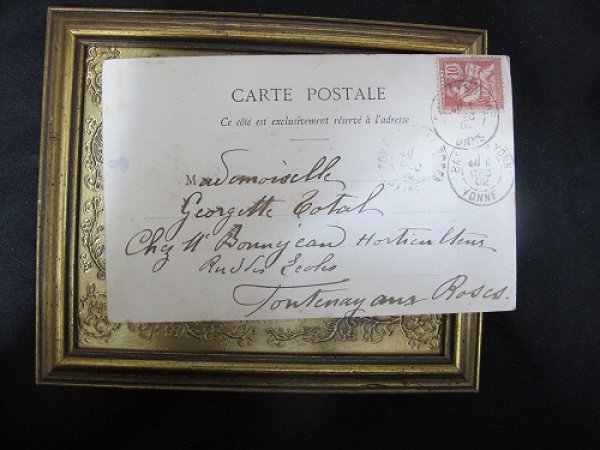 CARTE POSTALE
Ce côté est exclusivement réservé à l'adresse
10
Mademoiselle
Georgette Total
Chez Mr Bonnejean Horticulteur
Rue des Ecoles
Fontenay aux Roses.
02
YONNE